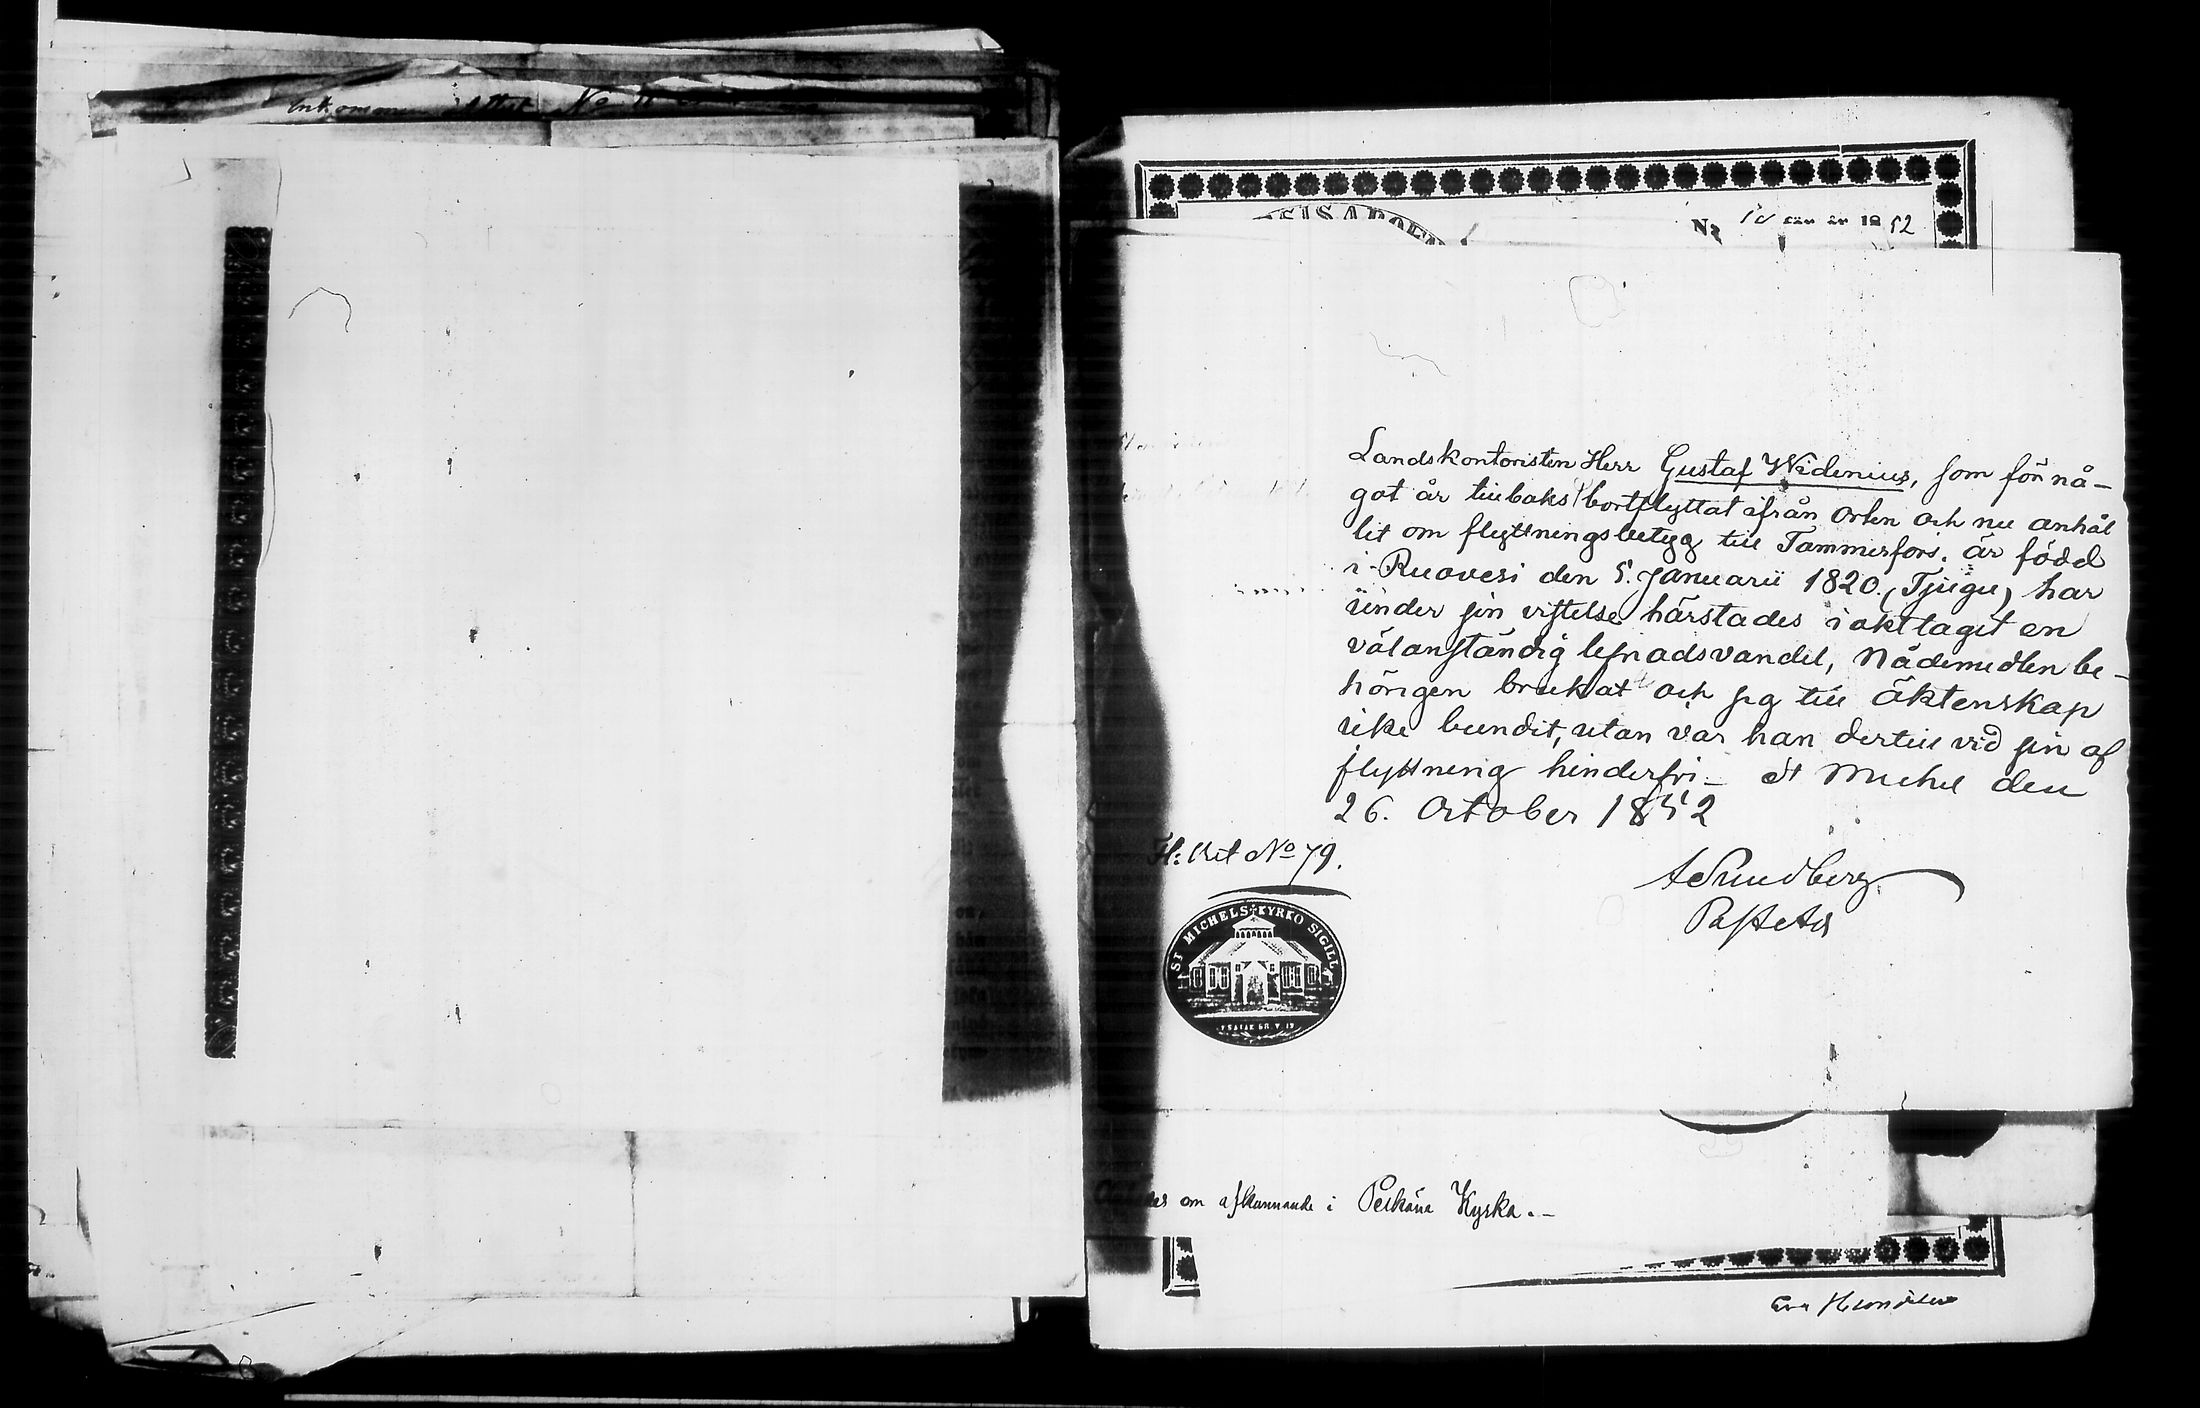 Inkommen attest No 11
No 10 för år 1852
Landskontoristen Herr Gustaf Widenius, som för nå-
got år tillbaks bortflyttat ifrån orten och nu anhål
lit om flyttningsbetyg till Tammerfors, är född
i Ruovesi den 5. Januarii 1820. (Tjugu) har
under sin vistelse härstädes iakttagit en
välanständig lefnadsvandel, Nådemedlen be-
hörigen brukat och sig till äktenskap
icke bundit, utan var han dertill vid sin af
flyttning hinderfri_ St Michel den
26. October 1852
Fl: Bet No 79.
A Sundberg
Past. Adj
ST MICHELS KYRKO SIGILL
ESAIAK 60. V. 13
om afkunnande i Pelkäne Kyrka._